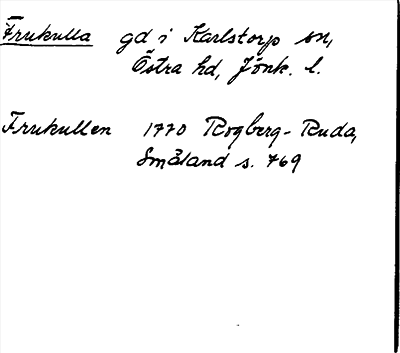 Frukulla gd i Karlstorp sn,
Östra hd, Jönk. l.
Frukullen 1770 Rogberg-Ruda,
Småland s. 769